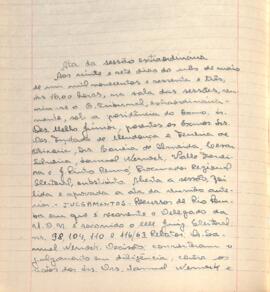 Ata da sessão extraordinária
Aos vinte e sete dias do mês de maio
de um mil novecentos e sessenta e três,
às 16,00 horas, na sala das sessões, reu-
niu-se o E. Tribunal, extraordinaria-
mente, sob a presidência do Exmo. sr.
Des. Mello Junior, presentes os Exmos. srs.
Des. Furtado de Mendonça e Ferreira de
Oliveira, drs. de Almeida, Cesar
Silveira, Samuel Werneck, Valle Ferrei-
ra e J. Pinto Renó, Procurador Regional
Eleitoral, substituto. Aberta a sessão, foi
lida e aprovada a ata da reunião ante-
rior. - JULGAMENTOS. Recursos de Rio Pom-
ba em que é recorrente o Delegado da
U.D.N. e recorrido o M. Juiz Eleitoral,
nr. 98, 104, 110 e 116/63. Relator: Dr. Sa-
muel Werneck. Decisão: converteram o
julgamento em diligência, contra os
votos dos srs. Drs. Samuel Werneck e